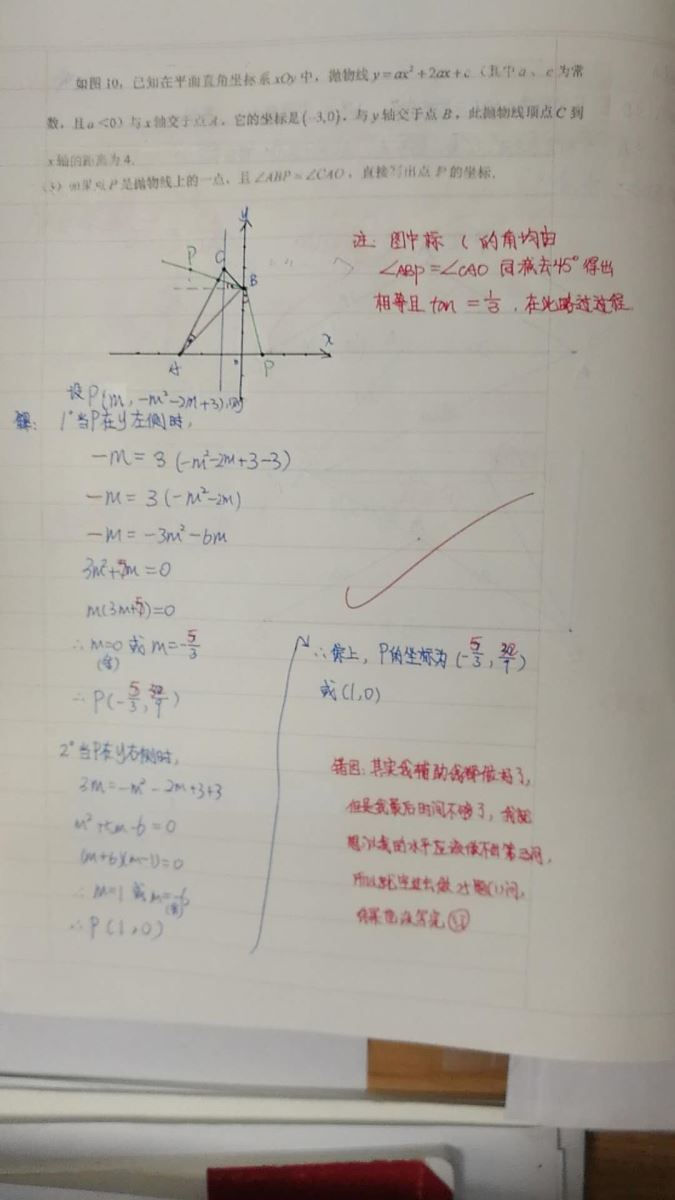 如图10,已知在平面直角坐标系xOy中,抛物线y=ax²+2ax+c(其中a、c为常
数,且a<0)与x轴交于点A,它的坐标是(-3,0),与y轴交于点B,此抛物线顶点C到
x轴的距离为4.
(3)如果点P是抛物线上的一点,且∠ABP=∠CAO,直接写出点P的坐标.
注:图中标(的角均由
∠ABP=∠CAO同减去45°得出
相等且tan=1/3,在此略过过程
y
P
C
B
A
P
x
设P(m,-m²-2m+3),则
解:1°当P在y左侧时,
-m=3(-m²-2m+3-3)
-m=3(-m²-2m)
-m=-3m²-6m
3m²+5m=0
m(3m+5)=0
∴m=0或m=-5/3
(舍)
∴P(-5/3,32/9)
2°当P在y右侧时,
3m=-m²-2m+3+3
m²+5m-6=0
(m+6)(m-1)=0
∴m=1或m=-6
(舍)
∴P(1,0)
∴综上,P的坐标为(-5/3,32/9)
或(1,0)
错因:其实我辅助线都做好了,
但是我最后时间不够了,我就
想以我的水平应该做不出第三问,
所以就空过去做25题(1)问,
结果也没写完